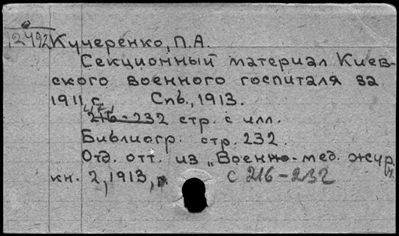 12492 Кучеренко, П.А.
Секционный материал Киев-
ского военного госпиталя за
1911 г. Спб., 1913.
216-232 стр. с илл.
Библиогр. стр. 232.
Отд. отт. из „Военно-мед. журн.
кн. 2, 1913, с 216-232